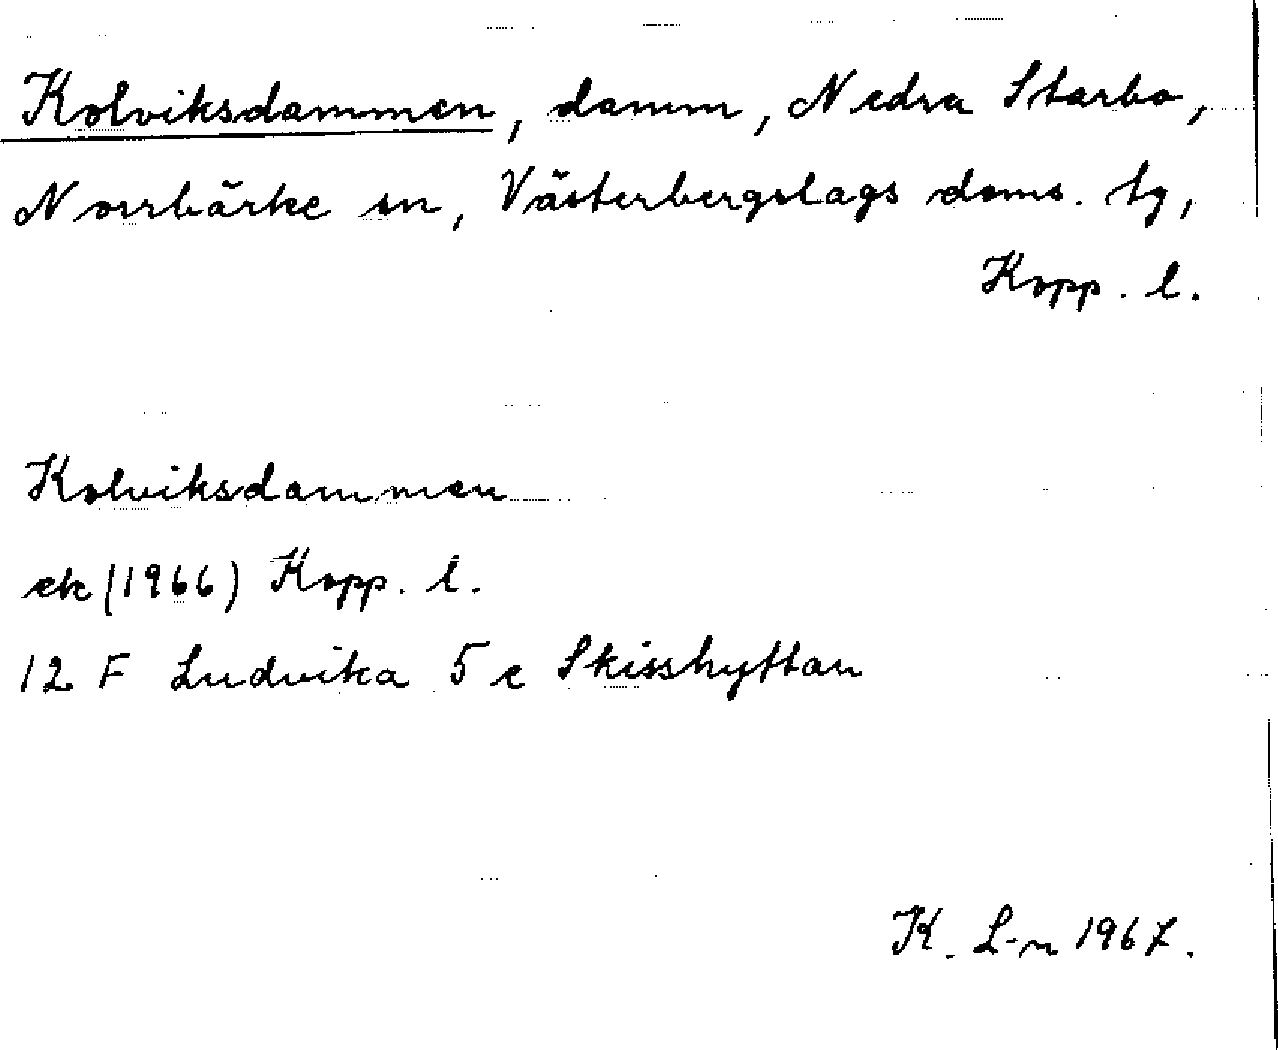 Kolviksdammen, damm, Nedra Starbo,
Norrbärke sn, Västerbergslags doms. tg,
Kopp. l.
Kolviksdammen
ek (1966) Kopp. l.
12 F Ludvika 5 e Skisshyttan
K. L-n 1967.